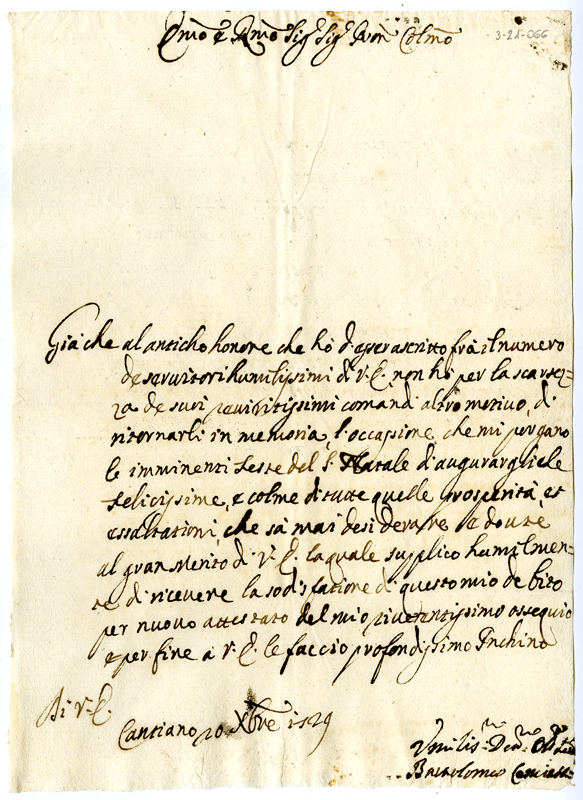 Emō e Rmō Sig.r Sig.r Pron Colmō
3-21-066
Già che al anticho honore che hò d'esser ascritto frà il numero
de servitori humilissimi di V.E. non hò per la scarsez=
za de suoi pregiatissimi comandi altro motivo, di
ritornarli in memoria, l'occassione, che mi porgano
le imminenti feste del S. Natale d'augurargliele
felicissime, e colme di tutte quelle prosperità, et
essaltationi, che sà mai desiderare e dovute
al gran Merito di V.E. la quale supplico humilmen=
te di ricevere la sodisfatione di questo mio debito
per nuovo attestato del mio riverentissimo ossequio
e per fine à V.E. le faccio profondissimo Inchino
Di V.E.
Cantiano 20 Xbre 1729
Umilis.mo Dev.mo
Bartolomeo